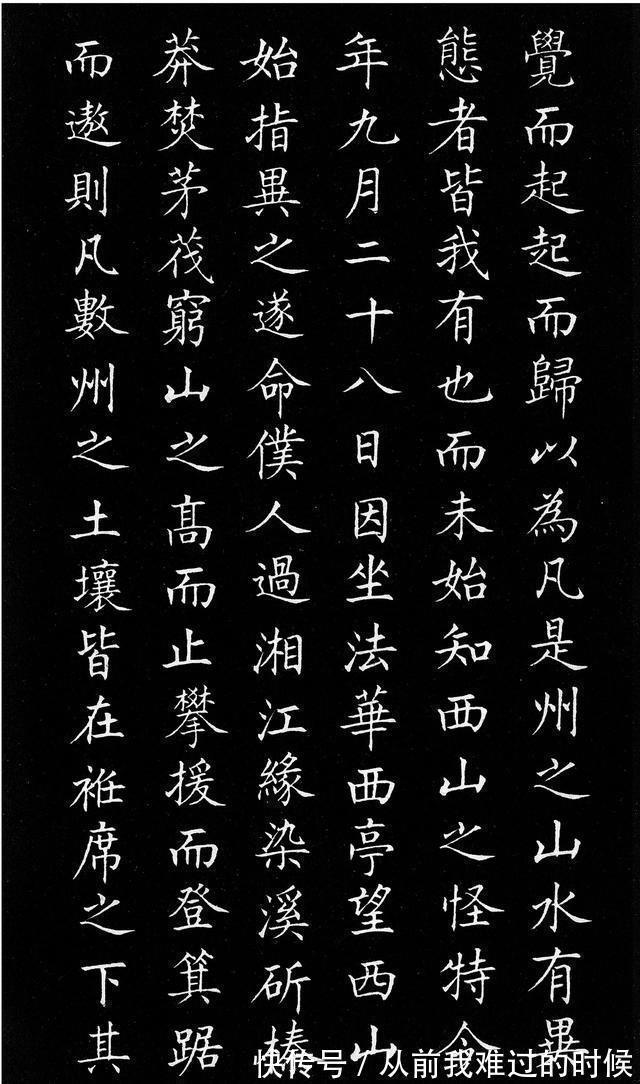 覺而起起而歸以為凡是州之山水有異
態者皆我有也而未始知西山之怪特今
年九月二十八日因坐法華西亭望西山
始指異之遂命僕人過湘江緣染溪斫榛
莽焚茅茷窮山之髙而止攀援而登箕踞
而遨則凡數州之土壤皆在袵席之下其
快传号/从前我难过的时候